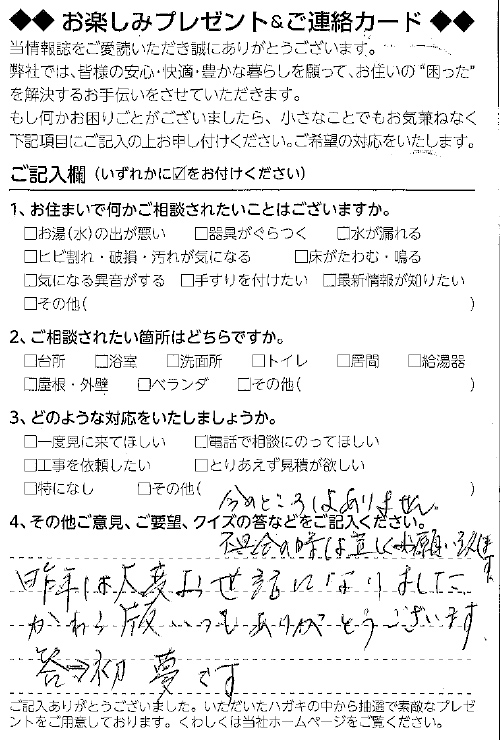 ◆◆ お楽しみプレゼント&ご連絡カード ◆◆
当情報誌をご愛読いただき誠にありがとうございます。
弊社では、皆様の安心・快適・豊かな暮らしを願って、お住いの“困った”
を解決するお手伝いをさせていただきます。
もし何かお困りごとがございましたら、小さなことでもお気兼ねなく
下記項目にご記入の上お申し付けください。ご希望の対応をいたします。
ご記入欄（いずれかに☑をお付けください）
1、お住まいで何かご相談されたいことはございますか。
□お湯(水)の出が悪い □器具がぐらつく □水が漏れる
□ヒビ割れ・破損・汚れが気になる □床がたわむ・鳴る
□気になる異音がする □手すりを付けたい □最新情報が知りたい
□その他( )
2、ご相談されたい箇所はどちらですか。
□台所 □浴室 □洗面所 □トイレ □居間 □給湯器
□屋根・外壁 □ベランダ □その他( )
3、どのような対応をいたしましょうか。
□一度見に来てほしい □電話で相談にのってほしい
□工事を依頼したい □とりあえず見積が欲しい
□特になし □その他( )
今のところはありません。
4、その他ご意見、ご要望、クイズの答などをご記入ください。
不具合の時は宜しくお願い致します
昨年は大変お世話になりました
かわら版いつもありがとうございます。
答⇒初夢です
ご記入ありがとうございました。いただいたハガキの中から抽選で素敵なプレゼ
ントをご用意しております。くわしくは当社ホームページをご覧ください。